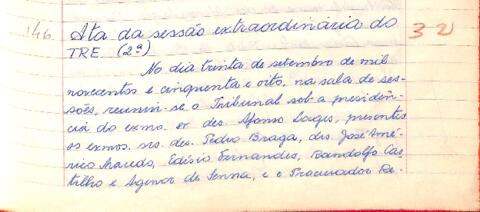 146 Ata da sessão extraordinária do 32
TRE (2ª)
No dia trinta de setembro de mil
novecentos e cinquenta e oito, na sala de ses-
sões, reuniu-se o Tribunal sob a presidên-
cia do exmo. sr. des. Afonso Lages, presentes
os exmos. srs. des. Pedro Braga, drs. José Amé-
rico Macedo, Edísio Fernandes, Randolfo Cas-
tilho e Agenor de Senna, e o Procurador Re-